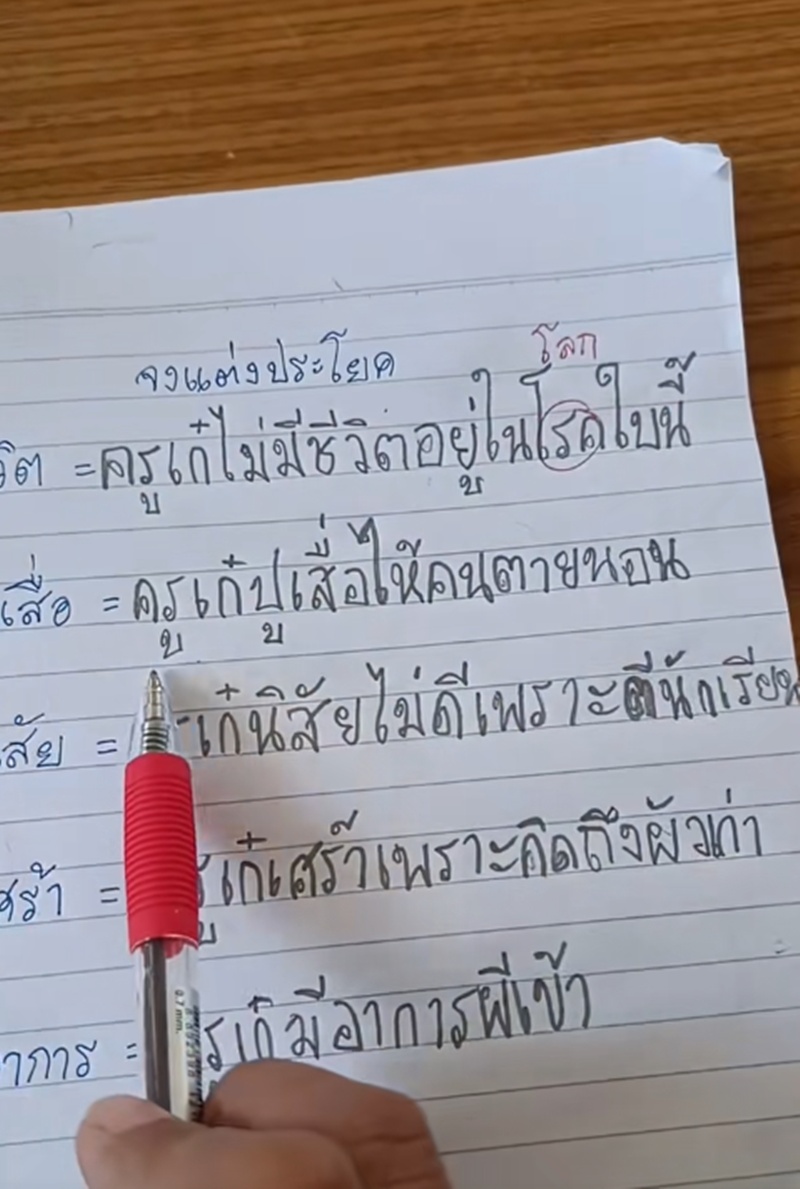 จงแต่งประโยค
โลก
วิต = ครูเก๋ไม่มีชีวิตอยู่ในโรคใบนี้
เสื่อ = ครูเก๋ปูเสื่อให้คนตายนอน
สัย = เก๋นิสัยไม่ดีเพราะตีนักเรียน
ศร้า = รูเก๋เศร้าเพราะคิดถึงผัวเก่า
าการ = รูเก๋มีอาการผีเข้า